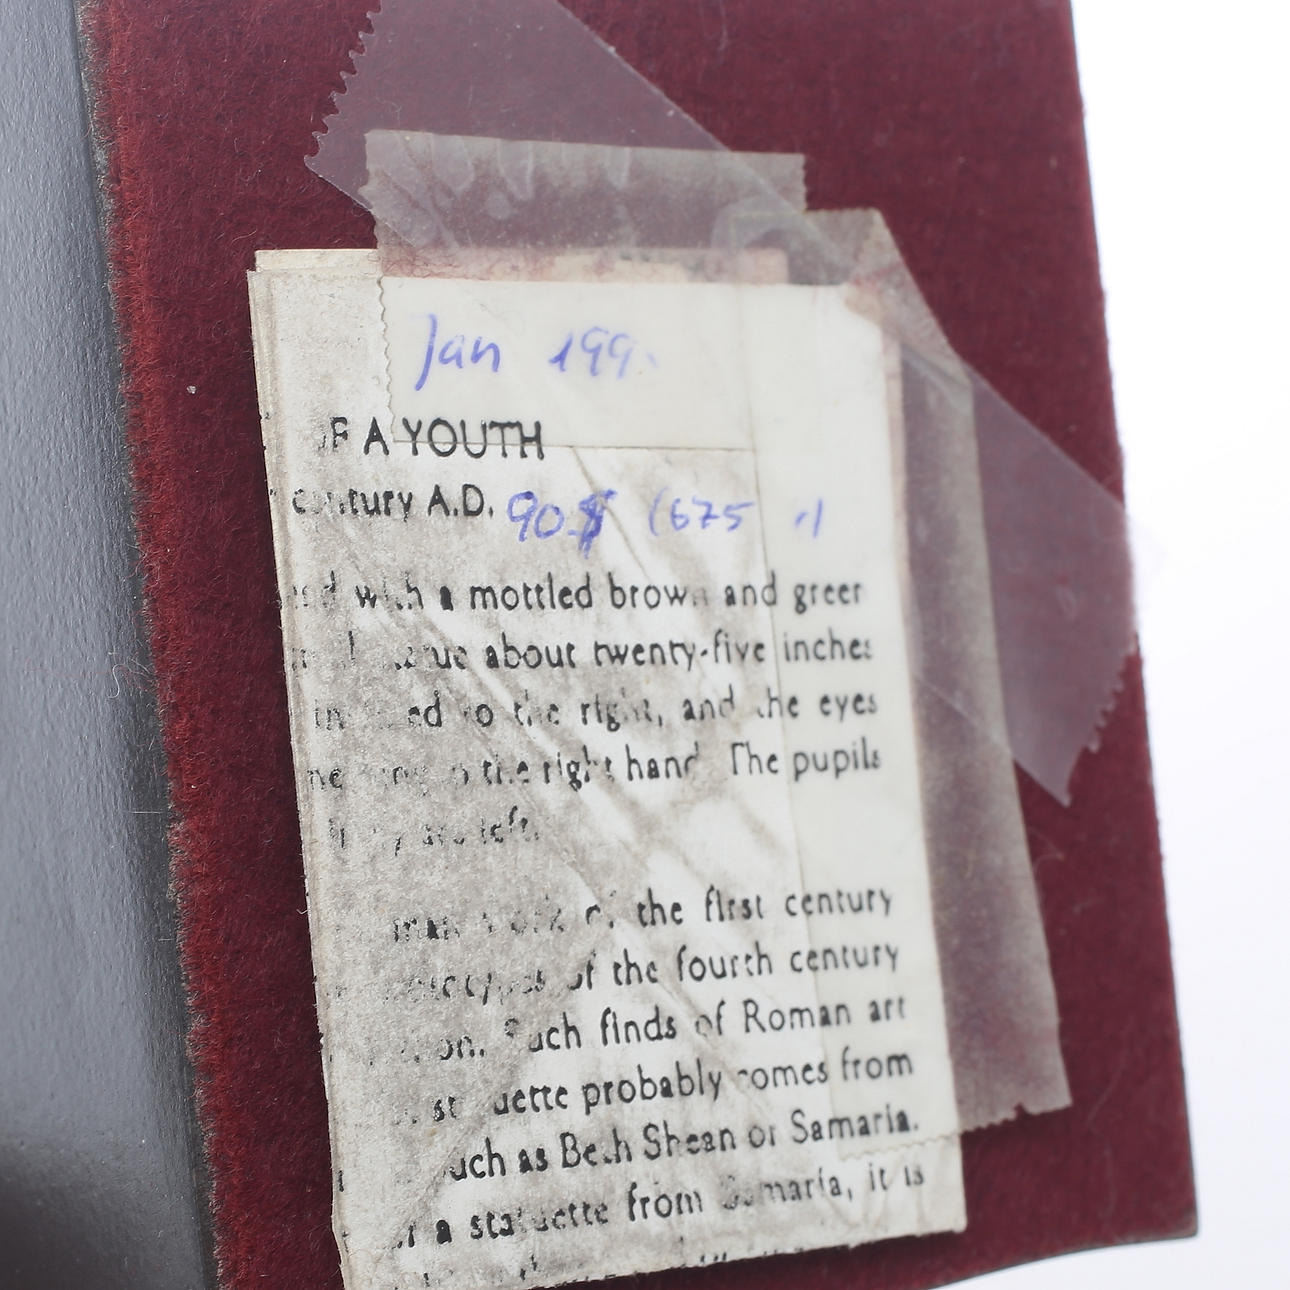 Jan 199
OF A YOUTH
century A.D. 90 $ (675
with a mottled brown and green
about twenty-five inches
to the right, and the eyes
the right hand. The pupils
left.
work of the first century
of the fourth century
Such finds of Roman art
statuette probably comes from
such as Beth Shean or Samaria.
a statuette from Samaria, it is